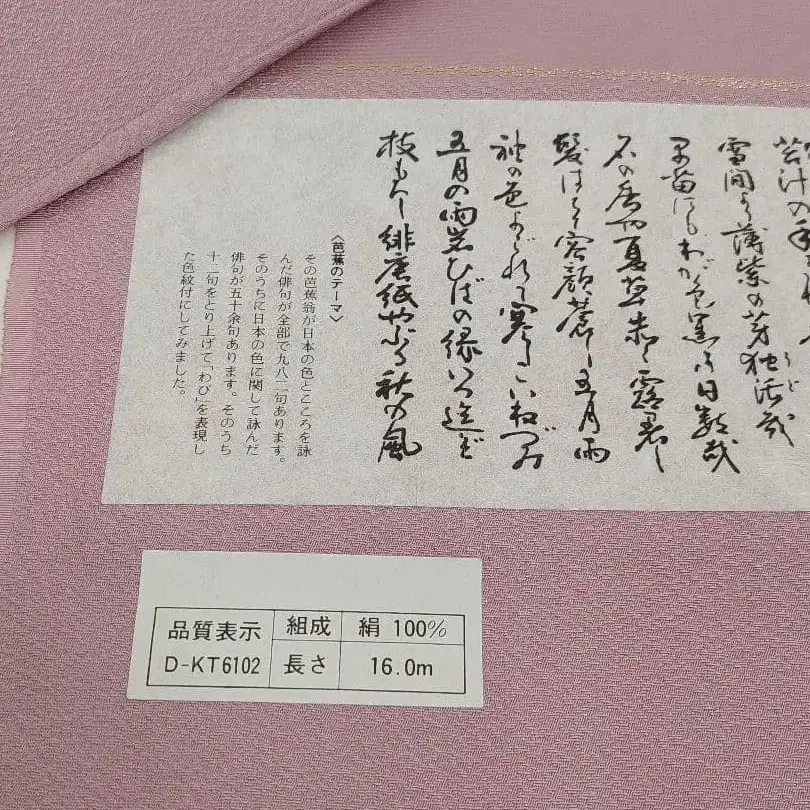 苔汁の手
雪間より薄紫の芽独活哉
うど
早苗にもわが色黒き日数哉
石の香や夏草赤く露暑し
髪はえて容顔蒼し五月雨
袖の色よごれて寒しこいねづみ
五月の雨岩ひばの緑いつ迄ぞ
枝もろし緋唐紙やぶる秋の風
〈芭蕉のテーマ〉
その芭蕉翁が日本の色とこころを詠
んだ俳句が全部で九八二句あります。
そのうちに日本の色に関して詠んだ
俳句が五十余句あります。そのうち
十二句をとり上げて「わび」を表現し
た色紋付にしてみました。
品質表示 組成 絹 100%
D-KT6102 長さ 16.0m